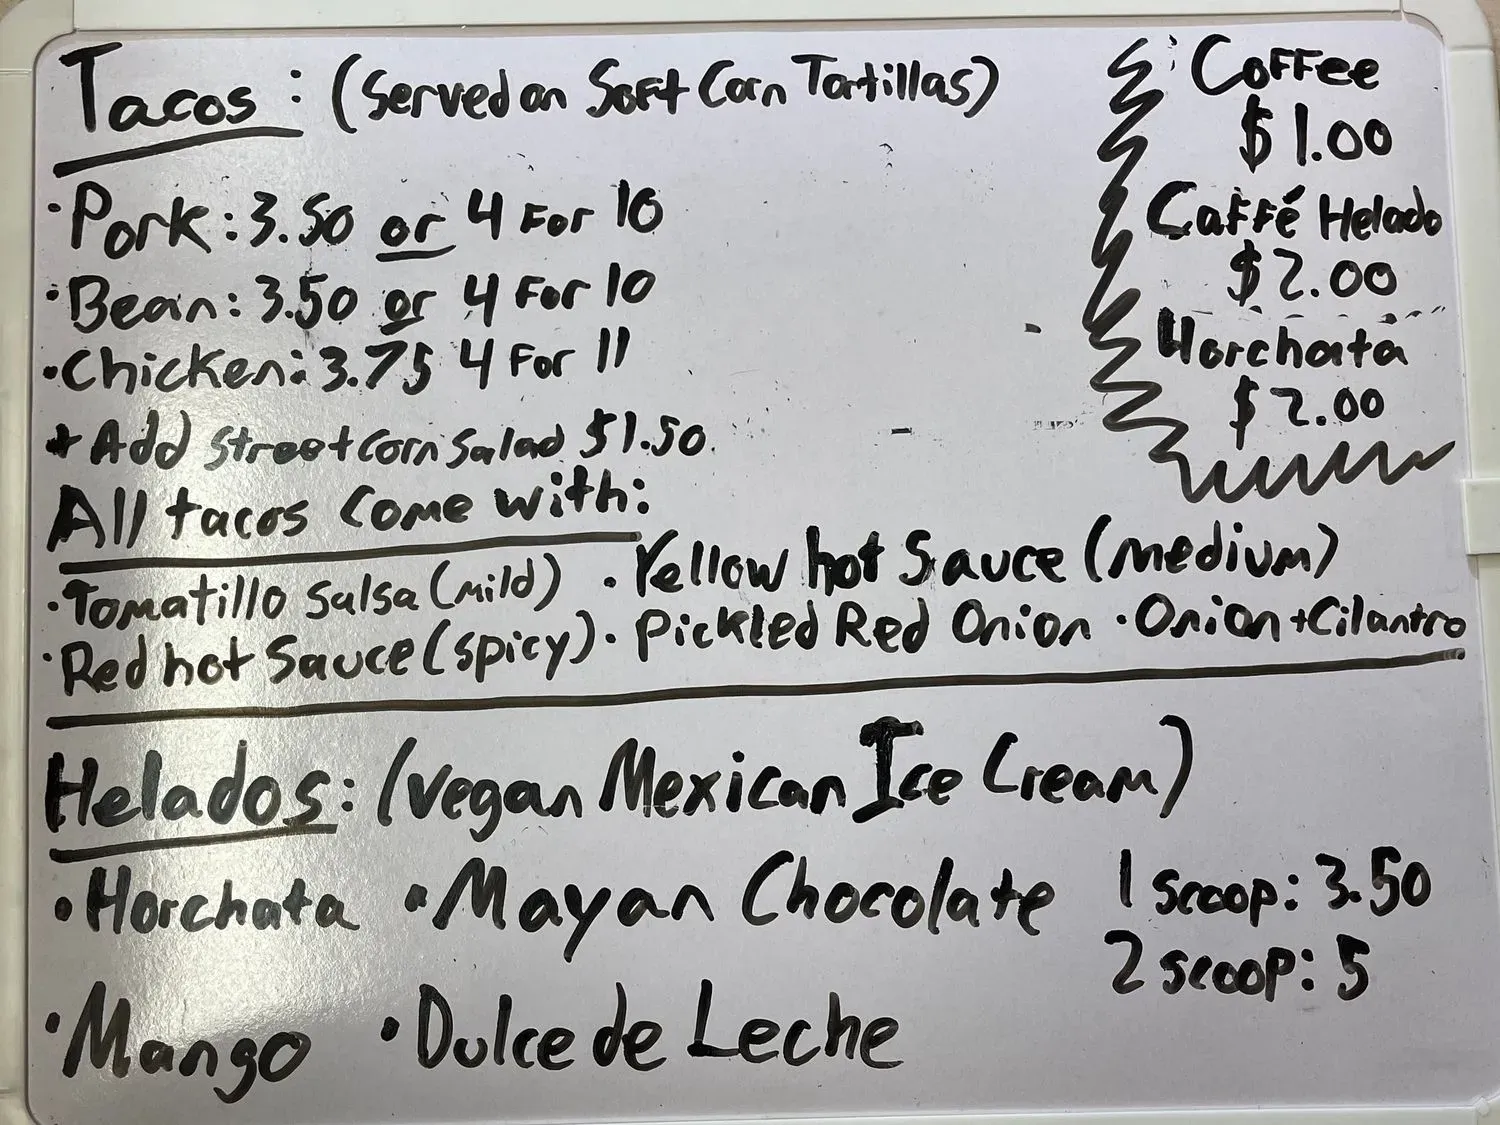 Tacos: (Served on Soft Corn Tortillas)
• Pork: 3.50 or 4 For 10
• Bean: 3.50 or 4 For 10
• Chicken: 3.75 4 For 11
+ Add street corn salad $1.50
Coffee
$1.00
Caffé Helado
$2.00
Horchata
$2.00
All tacos come with:
• Tomatillo Salsa (mild) • Yellow hot Sauce (medium)
• Red hot Sauce (spicy) • Pickled Red Onion • Onion + Cilantro
Helados: (Vegan Mexican Ice Cream)
• Horchata • Mayan Chocolate
• Mango • Dulce de Leche
1 scoop: 3.50
2 scoop: 5